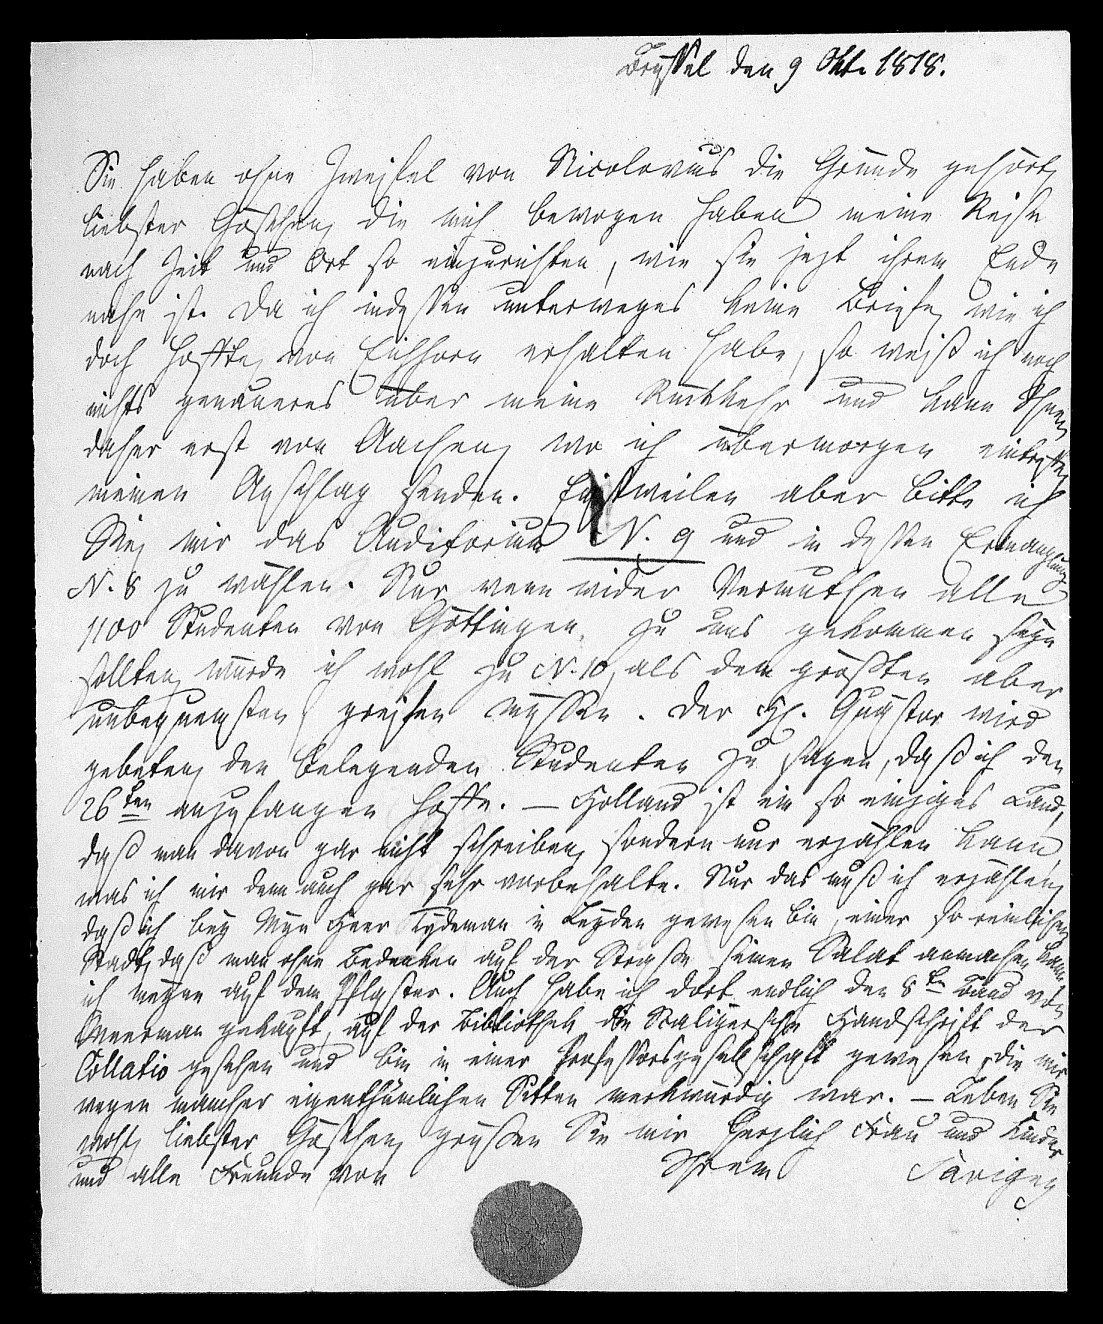 Brüssel den 9 Okt. 1818.
Sie haben ohne Zweifel von Nicolovius die Gründe gehört,
liebster Göschen, die mich bewogen haben meine Reise
nach Zeit und Ort so einzurichten, wie sie jezt ihrem Ende
nahe ist. Da ich indessen unterweges keine Briefe, wie ich
doch hoffte, von Eichhorn erhalten habe, so weiß ich noch
nichts genaueres über meine Rückkehr und kann Ihnen
daher erst von Aachen, wo ich übermorgen eintreffe,
meinen Anschlag senden. Einstweilen aber bitte ich
Sie, mir das Auditorium N. 9 und in dessen Ermanglung
N. 8 zu wählen. Nur wenn wider Vermuthen alle
1100 Studenten von Göttingen zu uns gekommen seyn
sollten, würde ich wohl zu N. 10, als dem größten aber
unbequemsten greifen müssen. Der H. Quästor wird
gebeten, den belegenden Studenten zu sagen, daß ich den
26ten anzufangen hoffe. – Holland ist ein so einziges Land,
daß man davon gar nicht schreiben, sondern nur erzählen kann,
was ich mir denn auch gar sehr vorbehalte. Nur das muß ich erzählen,
daß ich bey Myn Heer Tydeman in Leyden gewesen bin, einer so reinlichen
Stadt, daß man ohne Bedenken auf der Straße seinen Salat anmachen kann,
ich meyne auf dem Pflaster. Auch habe ich dort endlich den 8ten Band von
Meerman gekauft, auf der Bibliothek die Scaligersche Handschrift der
Collatio gesehen und bin in einer Professorsgesellschaft gewesen, die mir
wegen mancher eigenthümlichen Sitten merkwürdig war. – Leben Sie
wohl, liebster Göschen, grüßen Sie mir herzlich Frau und Kinder
und alle Freunde von Ihrem Savigny